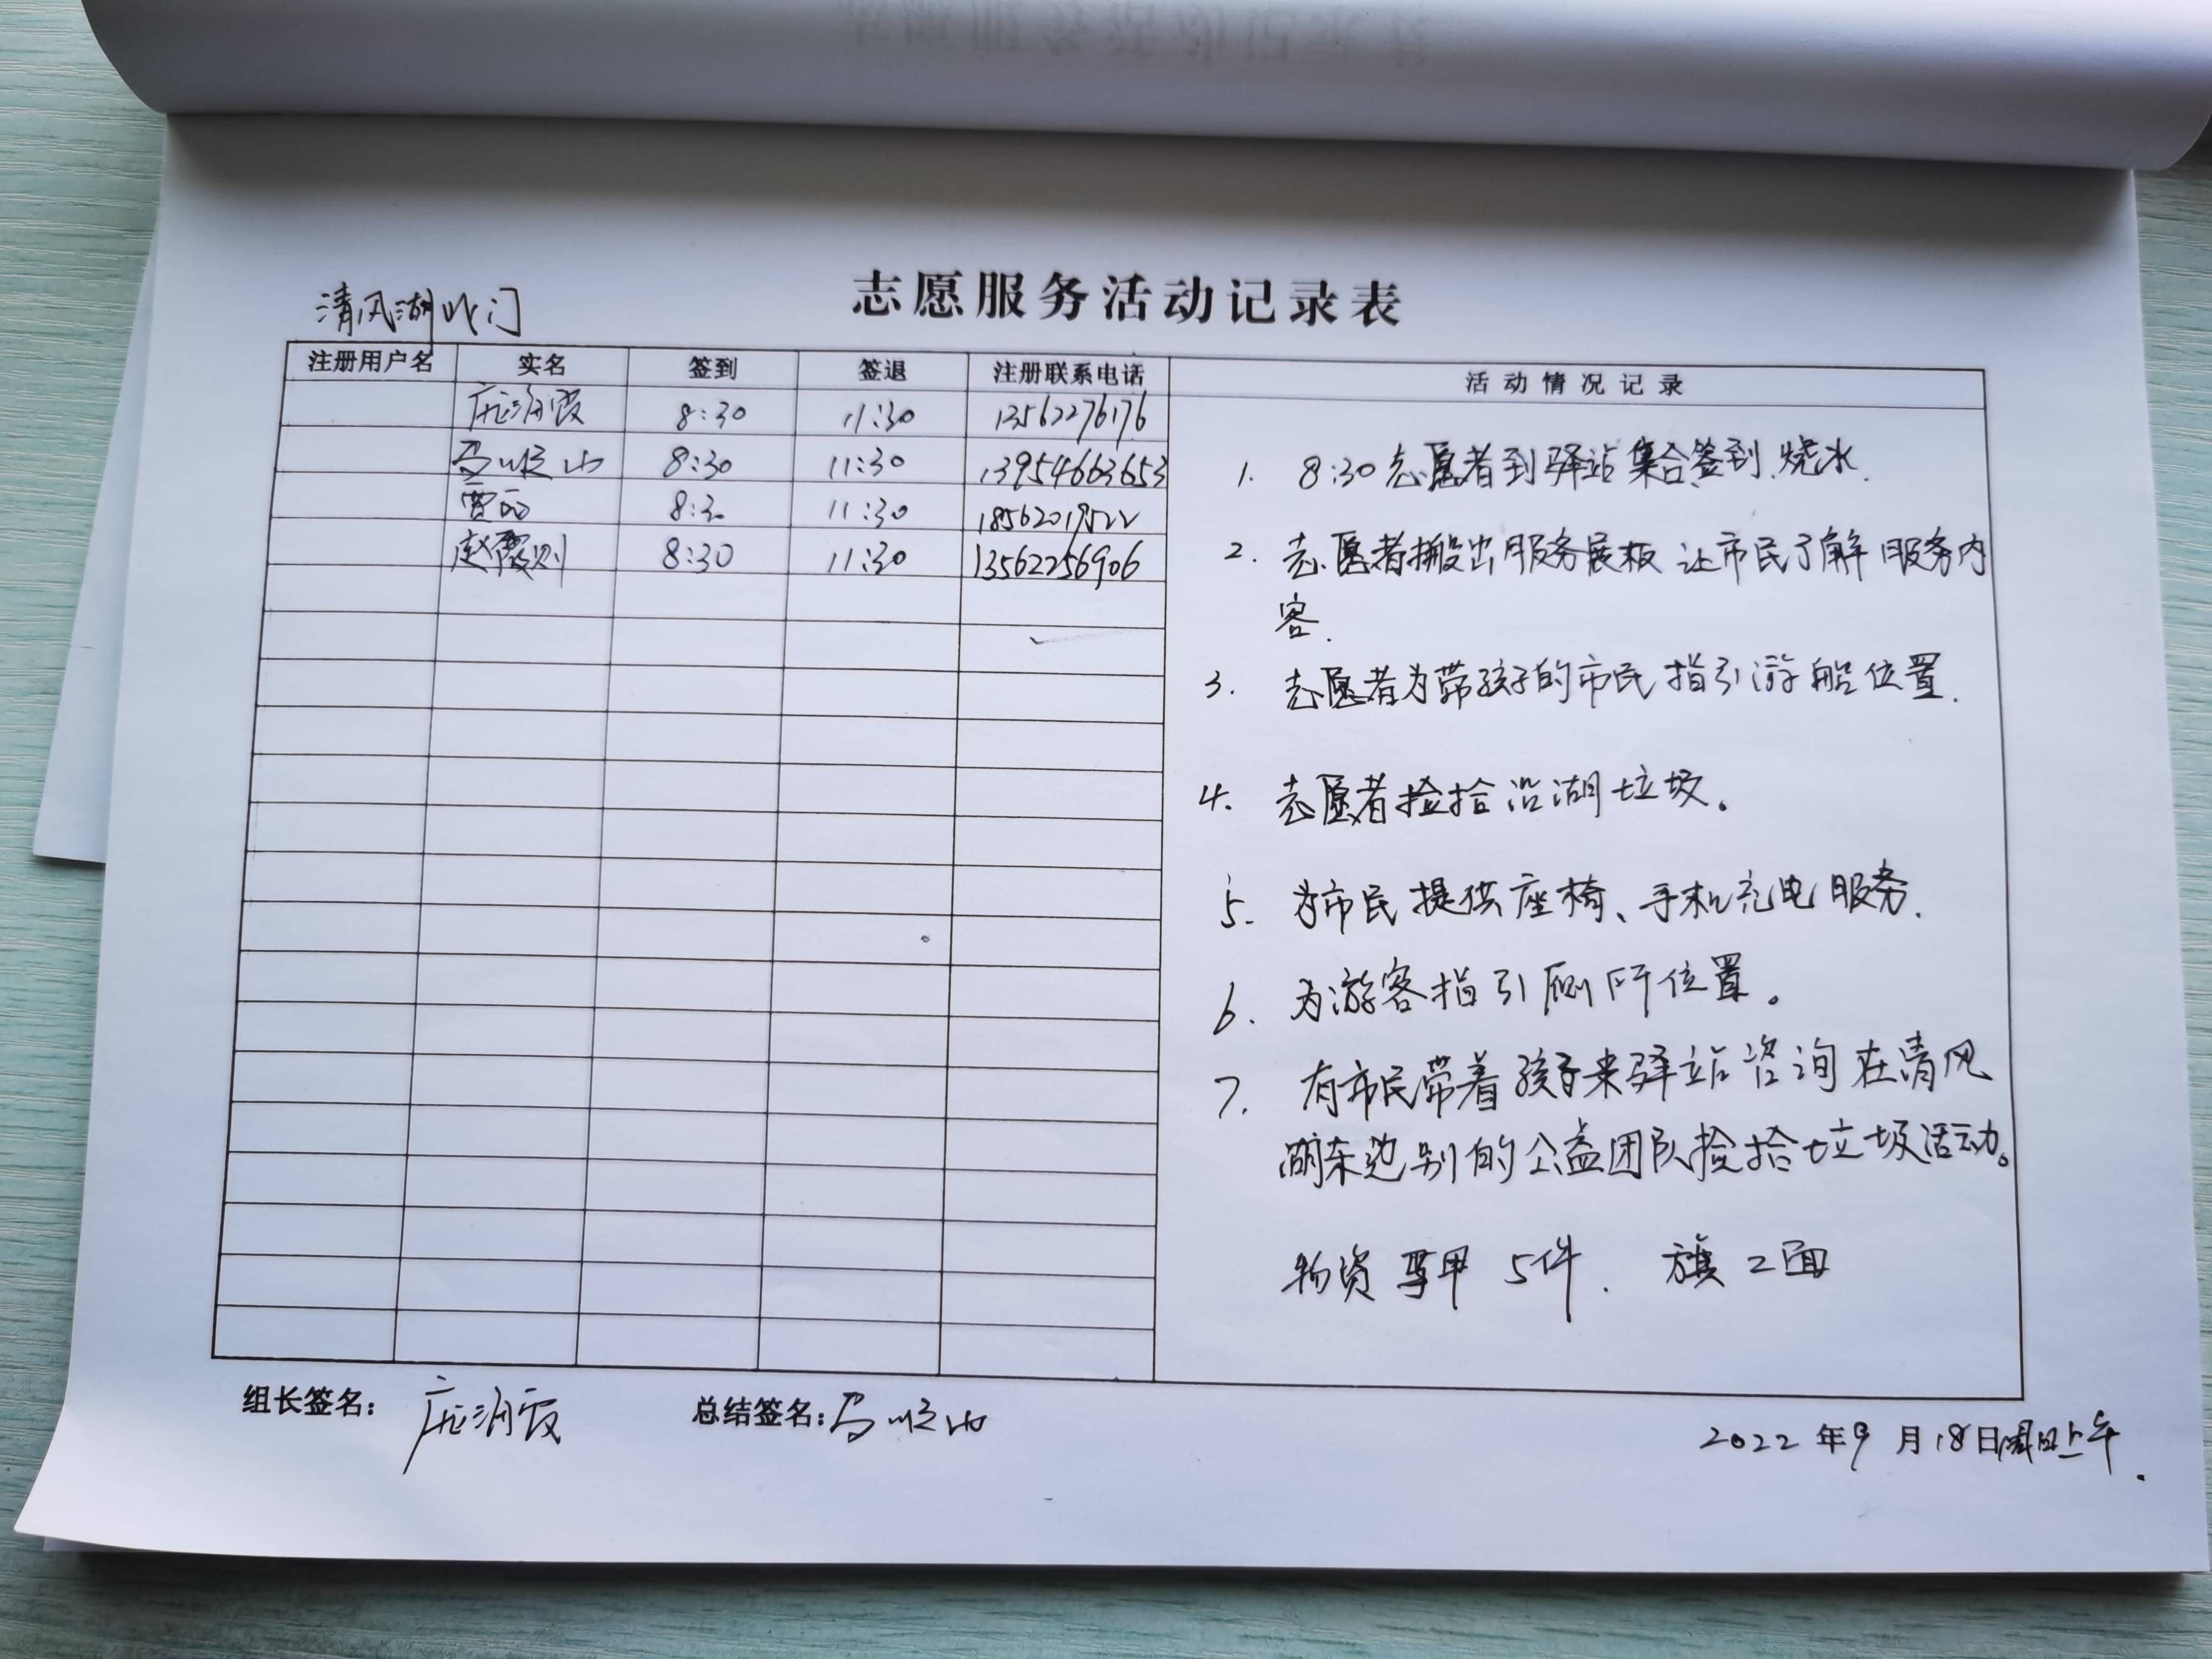 志愿服务活动记录表
清风湖北门
注册用户名 实名 签到 签退 注册联系电话 活动情况记录
庞润霞 8:30 11:30 13562276176
马顺山 8:30 11:30 13954663653
贾丽 8:30 11:30 18562019522
赵霞 8:30 11:30 13562256906
1. 8:30志愿者到驿站集合签到.烧水.
2. 志愿者搬出服务展板 让市民了解服务内
容.
3. 志愿者为带孩子的市民指引游船位置.
4. 志愿者捡拾沿湖垃圾。
5. 为市民提供座椅、手机充电服务.
6. 为游客指引厕所位置。
7. 有市民带着孩子来驿站咨询在清风
湖东边别的公益团队捡拾垃圾活动。
物资 马甲 5件. 旗2面
组长签名: 庞润霞 总结签名:马顺山
2022年9月18日周日上午.